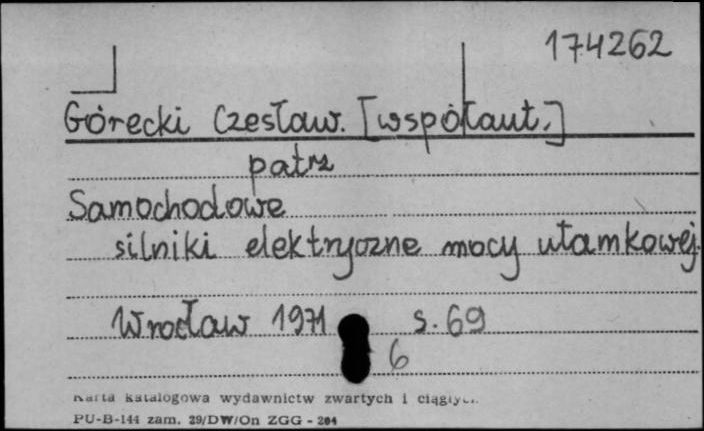 174262
Górecki Czesław. [współaut.]
patrz
Samochodowe
silniki elektryczne mocy ułamkowej.
Wrocław 1971 s. 69
6
Karta katalogowa wydawnictw zwartych i ciągłych
PU-B-144 zam. 29/DW/On ZGG - 204